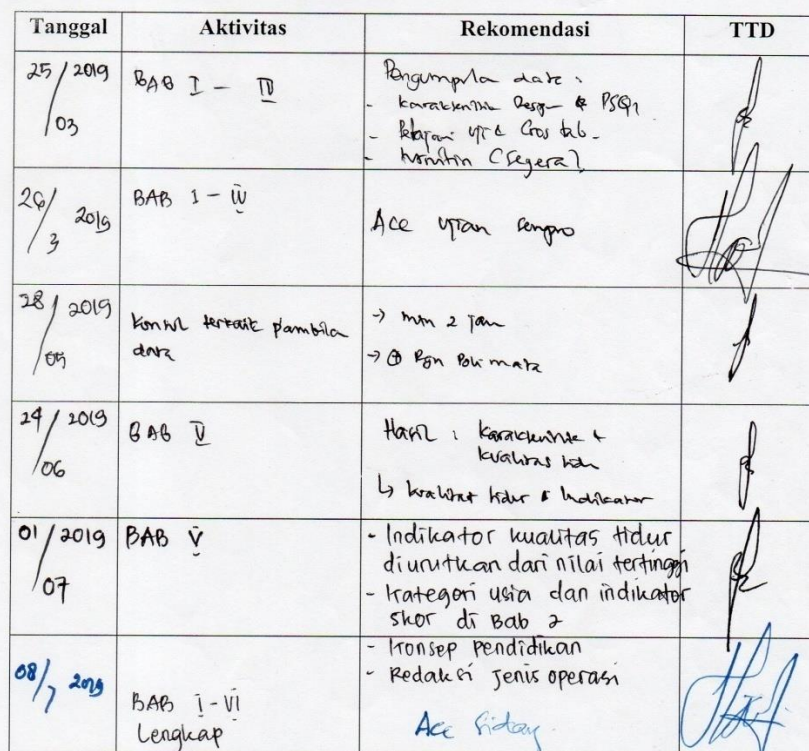 Tanggal Aktivitas Rekomendasi TTD
25/03 2019
BAB I - IV
Pengumpula data :
- Karakteristik Respon & PSQI
- Pelajari uji & Cros tab.
- (Segera)
26/3 2019
BAB I - IV
Acc ujian sempro
28/05 2019
Konsul terkait p'ambila
data
→ min 2 jam
→ Poli mata
24/06 2019
BAB V
Hasil : Karakteristik +
kualitas tidu
↳ kualitas tidur & Indikator
01/07 2019
BAB V
- Indikator kualitas tidur
diurutkan dari nilai tertinggi
- Kategori usia dan indikator
skor di Bab 2
- Konsep pendidikan
- Redaksi jenis operasi
08/7 2019
BAB I - VI
Lengkap
Acc Sidang